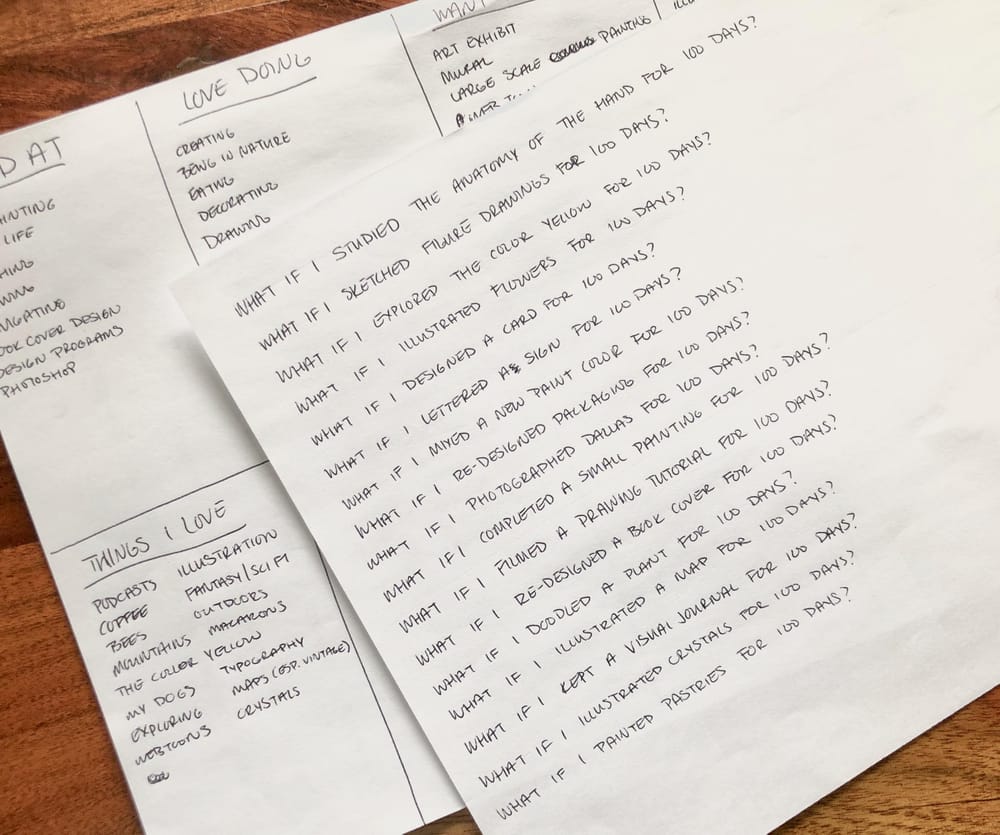 D AT
INTING
LIFE
OOK COVER DESIGN
DESIGN PROGRAMS
PHOTOSHOP
LOVE DOING
CREATING
BEING IN NATURE
EATING
DECORATING
DRAWING
WANT
ART EXHIBIT
MURAL
LARGE SCALE PAINTING
THINGS I LOVE
PODCASTS
COFFEE
BEES
MOUNTAINS
THE COLOR YELLOW
MY DOGS
EXPLORING
WEBTOONS
ILLUSTRATION
FANTASY/SCIFI
OUTDOORS
MACARONS
TYPOGRAPHY
MAPS (ESP. VINTAGE)
CRYSTALS
WHAT IF I STUDIED THE ANATOMY OF THE HAND FOR 100 DAYS?
WHAT IF I SKETCHED FIGURE DRAWINGS FOR 100 DAYS?
WHAT IF I EXPLORED THE COLOR YELLOW FOR 100 DAYS?
WHAT IF I ILLUSTRATED FLOWERS FOR 100 DAYS?
WHAT IF I DESIGNED A CARD FOR 100 DAYS?
WHAT IF I LETTERED A SIGN FOR 100 DAYS?
WHAT IF I MIXED A NEW PAINT COLOR FOR 100 DAYS?
WHAT IF I RE-DESIGNED PACKAGING FOR 100 DAYS?
WHAT IF I PHOTOGRAPHED DALLAS FOR 100 DAYS?
WHAT IF I COMPLETED A SMALL PAINTING FOR 100 DAYS?
WHAT IF I FILMED A DRAWING TUTORIAL FOR 100 DAYS?
WHAT IF I RE-DESIGNED A BOOK COVER FOR 100 DAYS?
WHAT IF I DOODLED A PLANT FOR 100 DAYS?
WHAT IF I ILLUSTRATED A MAP FOR 100 DAYS?
WHAT IF I KEPT A VISUAL JOURNAL FOR 100 DAYS?
WHAT IF I ILLUSTRATED CRYSTALS FOR 100 DAYS?
WHAT IF I PAINTED PASTRIES FOR 100 DAYS?